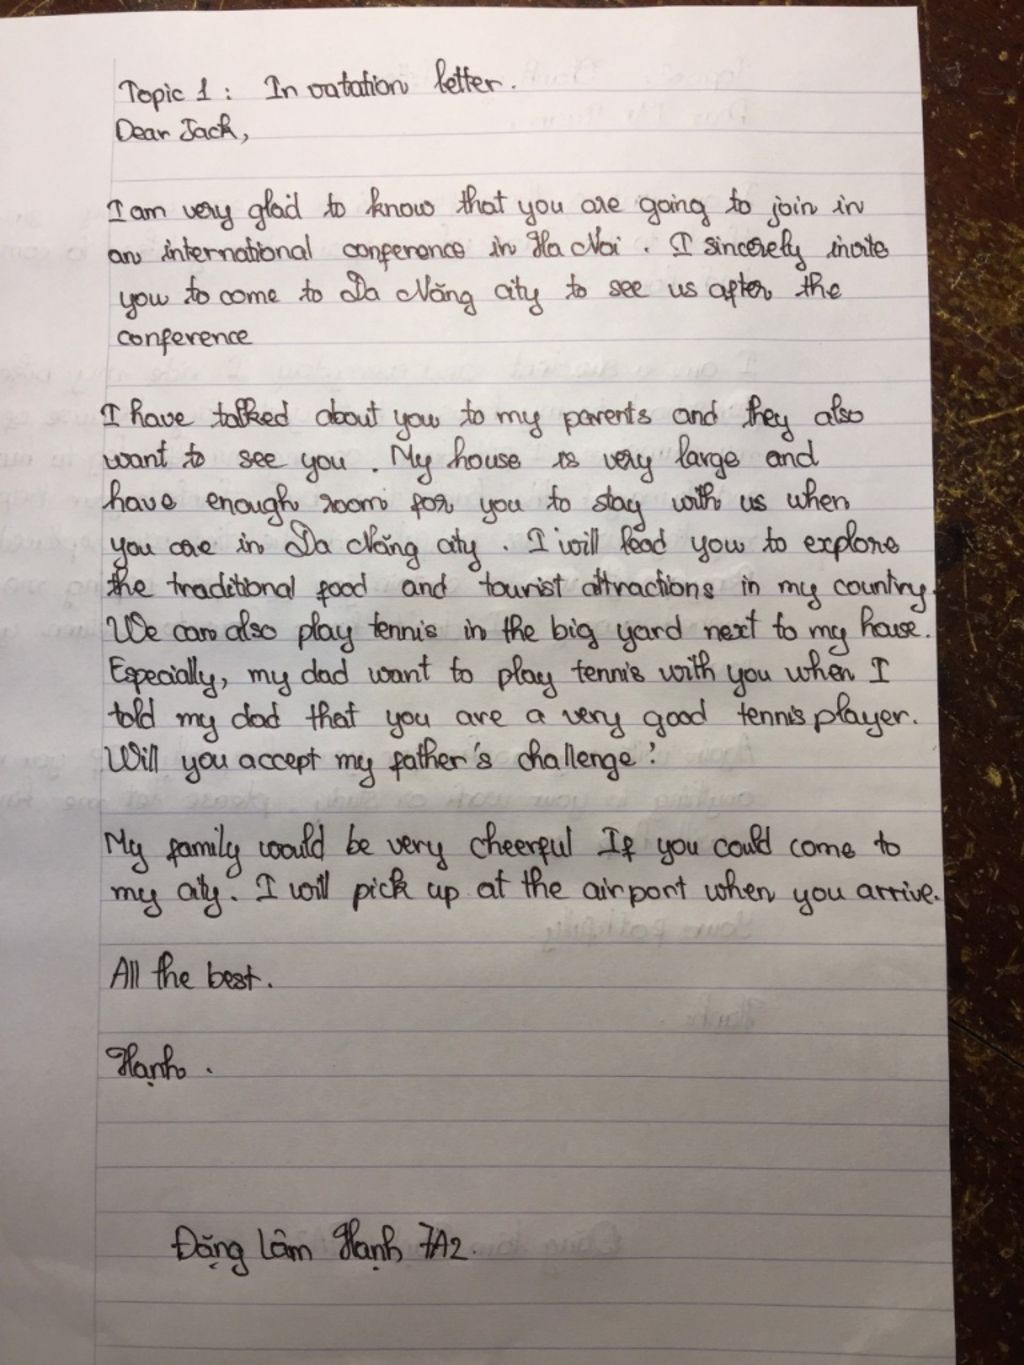 Topic 1: Invatation letter.
Dear Jack,
I am very glad to know that you are going to join in
an international conference in Ha Noi. I sincerely invite
you to come to Da Nẵng city to see us after the
conference
I have talked about you to my parents and they also
want to see you. My house is very large and
have enough room for you to stay with us when
you are in Da Nẵng city. I will lead you to explore
the traditional food and tourist attractions in my country.
We can also play tennis in the big yard next to my house.
Especially, my dad want to play tennis with you when I
told my dad that you are a very good tennis player.
Will you accept my father's challenge!
My family would be very cheerful If you could come to
my city. I will pick up at the airport when you arrive.
All the best.
Hạnh.
Đặng Lâm Hạnh 7A2.